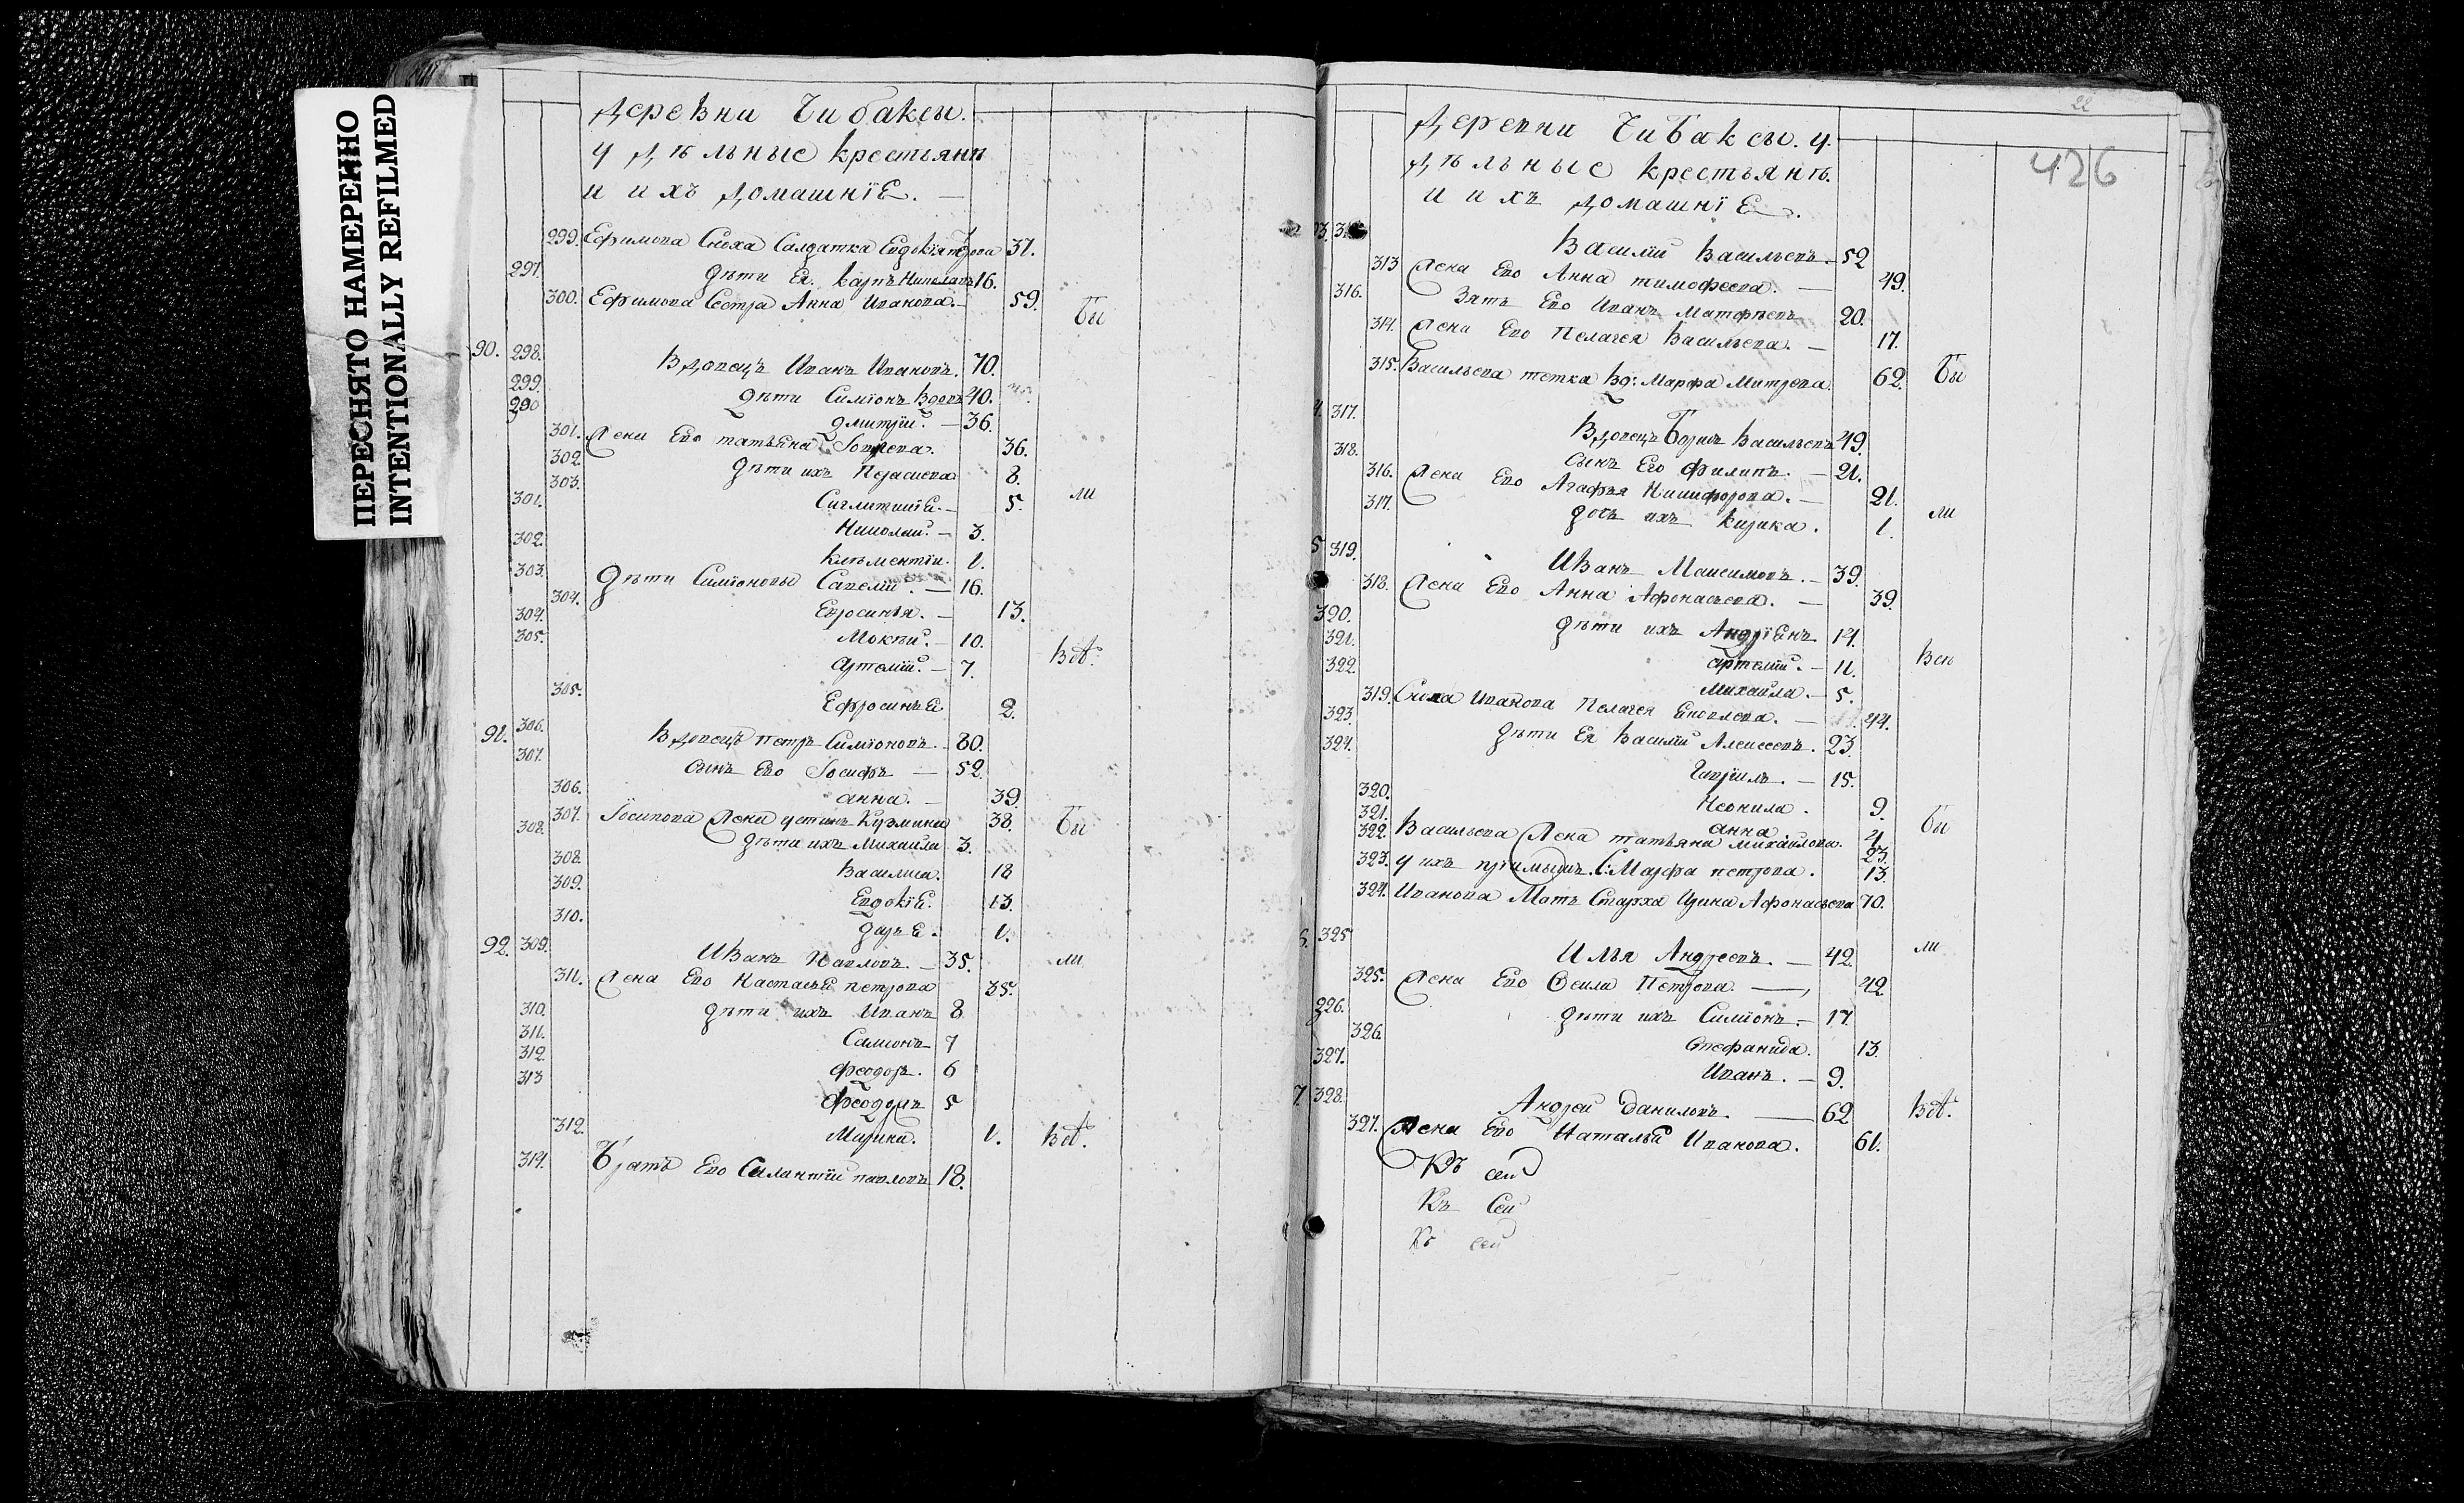 ПЕРЕСНЯТО НАМЕРЕННО
INTENTIONALLY REFILMED
деревни Чибаксы.
удѣльные крестьянѣ
и ихъ домашнїе. —
299. Ефимова Сноха Салдатка Евдокїя 37.
297. дѣти Ея Карпъ Николаевъ 16.
300. Ефимова Сестра Анна Иванова. — 59.
бы
90. 298. Вдовецъ Иванъ Ивановъ. 70.
299. дѣти Симїонъ Вдовъ 40.
290 дмитрїй. — 36.
301. Жена Ево татьяна 36.
302. дѣти ихъ Парасковья 8.
303. 5. ли
301. Николай. — 3.
302. Климентїй. 1.
303. дѣти Симїоновы Савелїй. — 16.
304. Евросинья. — 13.
304. Мокѣй. — 10.
305. Артемїй. — 7.
Всѣ.
305. Ефросинья 2.
91. 306. Вдовецъ Петръ Симїоновъ. — 80.
307. сынъ Ево Iосифъ — 52.
306. анна. — 39.
307. Iосипова Жена устинья Кузмина 38. бы
308. дѣти ихъ Михаила 3.
308. Василиса. 18
309. Евдокїя. 13.
310. дарья. 1.
92. 309. Иванъ Павловъ. — 35. ли
311. Жена Ево Настасья петрова 35.
310. дѣти ихъ Иванъ 8
311. Самсонъ 7
312. Феодоръ. 6
313 5
312. Марина. 1. Всѣ.
314. Братъ Ево Силантїй павловъ 18.
22
426
деревни Чибаксы. у
дѣльные крестьянѣ.
и ихъ домашнїе.
Василїй Васильевъ. — 52
313 Жена Ево Анна тимофеева. — 49.
316. Зять Ево Иванъ Матфѣевъ 20.
314. Жена Ево Пелагея Васильева. — 17.
315. Васильева тетка вд: Марфа Митрева. 62. бы
317. Вдовецъ Борисъ Васильевъ 49.
318. сынъ Его Филипъ. — 21.
316. Жена Ево Агафья Никифорова. — 21.
317. дочь ихъ Кирика. 1. ли
5 319. Иванъ Максимовъ. — 39.
318. Жена Ево Анна Афонасьева. — 39.
320. дѣти ихъ Андрїянъ 14.
321. артемїй. — 11. Всѣ
322. Михаила. — 5.
319. Сноха Иванова Пелагея Яковлева. — 44.
323. дѣти Ея Василїй Алексеевъ. 23.
324. Гаврїилъ. — 15.
320. Неонила. 9.
321. анна 4 бы
322. Васильева Жена татьяна михайлова. 23.
323. у ихъ прїмышъ. С: Марфа петрова. 13.
324. Иванова Мать Старха Ирина Афонасьева 70.
6. 325 Илья Андреевъ. — 42. ли
325. Жена Ево Фекла Петрова. — 42
326. дѣти ихъ Симїонъ. — 17.
326. Стефанида. 13.
327. Иванъ. — 9.
7. 328. Андрей даниловъ. — 62 Всѣ.
327. Жена Ево Наталья Иванова. 61.
Къ сей
Къ Сей
Къ сей